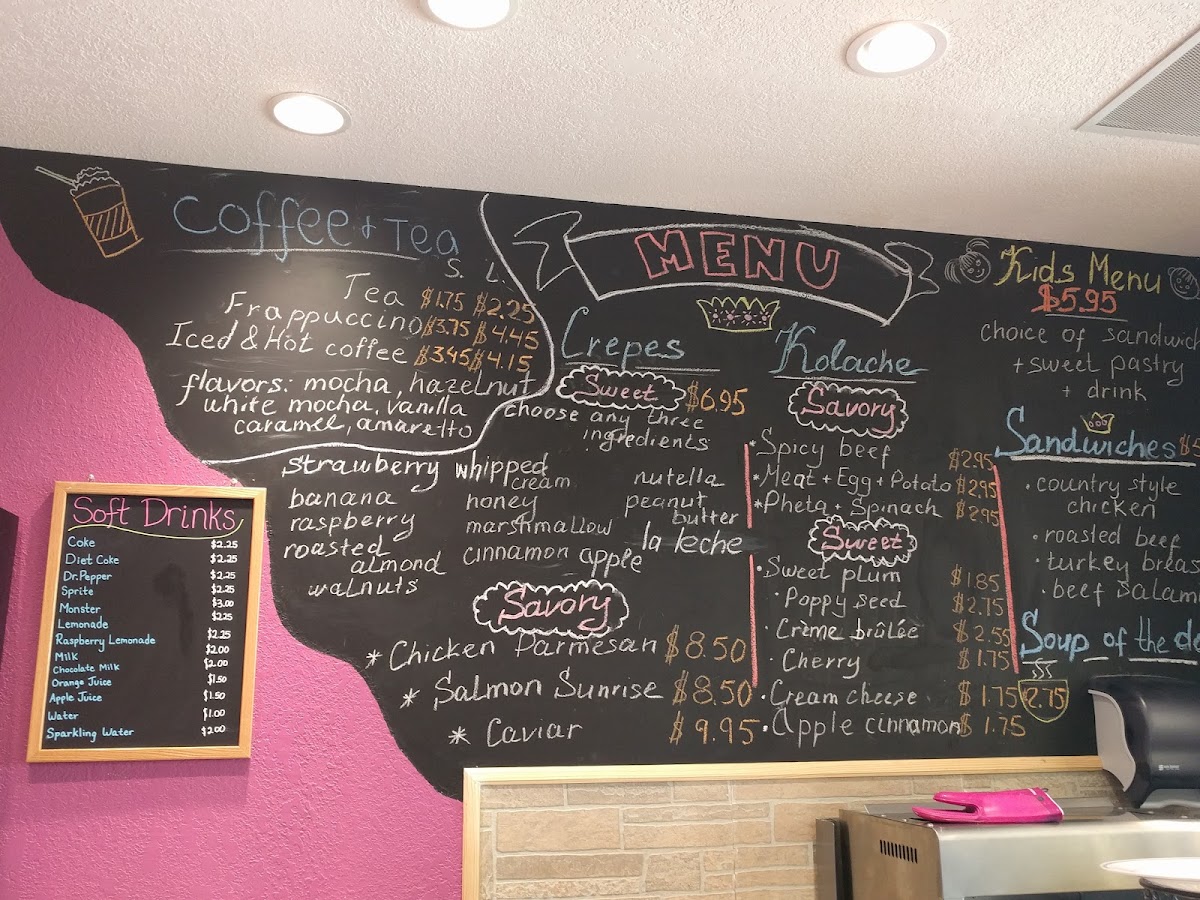 Coffee + Tea
S. L.
Tea $1.75 $2.25
Frappuccino $3.75 $4.45
Iced & Hot coffee $3.45 $4.15
flavors: mocha, hazelnut
white mocha, vanilla
caramel, amaretto
MENU
Crepes
Sweet $6.95
choose any three
ingredients
strawberry
banana
raspberry
roasted
almond
walnuts
whipped
cream
honey
marshmallow
cinnamon
nutella
peanut
butter
la leche
apple
Savory
* Chicken Parmesan $8.50
* Salmon Sunrise $8.50
* Caviar $9.95
Kolache
Savory
*Spicy beef $2.95
*Meat + Egg + Potato $2.95
*Pheta + Spinach $2.95
Sweet
• Sweet plum $1.85
• Poppy seed $2.75
• Crème brûlée $2.55
• Cherry $1.75
• Cream cheese $1.75
• Apple cinnamon $1.75
Kids Menu
$5.95
choice of sandwich
+ sweet pastry
+ drink
Sandwiches
• country style
chicken
• roasted beef
• turkey breas
• beef salam
Soup of the da
2.75
Soft Drinks
Coke $2.25
Diet Coke $2.25
Dr. Pepper $2.25
Sprite $2.25
Monster $3.00
Lemonade $2.25
Raspberry Lemonade $2.25
Milk $2.00
Chocolate Milk $2.00
Orange Juice $1.50
Apple Juice $1.50
Water $1.00
Sparkling Water $2.00